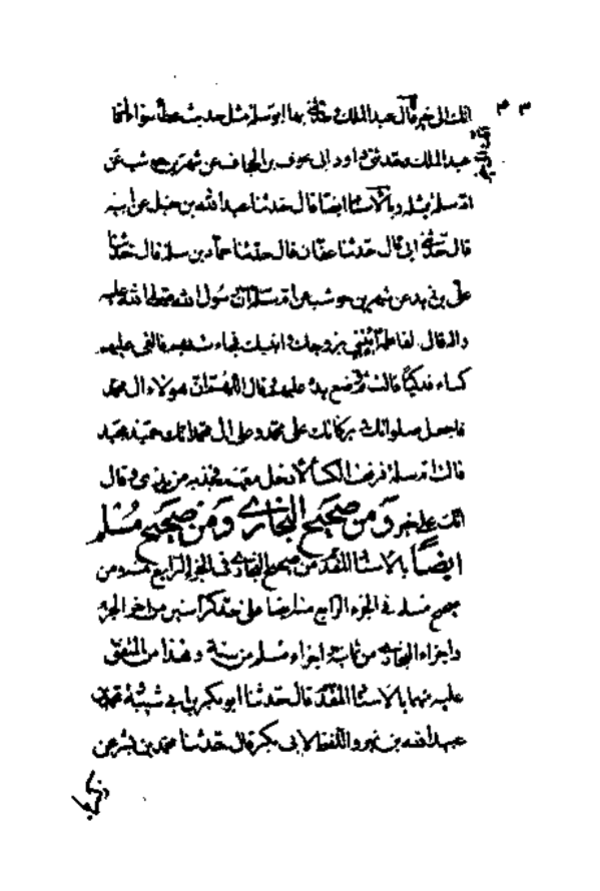 انك الى خير قال عبد الملك وحدثني بها ابو سلمة مثل حديث عطا سوا قال
٣ ٣
عبد الملك وحدثني داود ابن ابى عوف بن الجحاف عن شهر بن حوشب عن
ام سلمة بمثله وبالاسناد ايضا قال حدثنا عبد الله بن حنبل عن ابيه
قال حدثني ابى قال حدثنا عفان قال حدثنا حماد بن سلمة قال حدثنا
على بن زيد عن شهر بن حوشب عن ام سلمة ان رسول الله صلى الله عليه
واله قال لفاطمة ايتيني بزوجك وابنيك فجاءت بهم فالقى عليهم
كساء فدكيا قالت ثم وضع يده عليهم وقال اللهم ان هولاء ال محمد
فاجعل صلواتك وبركاتك على محمد وعلى ال محمد انك حميد مجيد
قالت ام سلمة فرفعت الكساء لادخل معهم فجذبه من يدى وقال
انك على خير ومن صحيح البخاري ومن صحيح مسلم
ايضا بالاسناد المقدم من صحيح البخاري فى الجزء الرابع منه ومن
صحيح مسلم فى الجزء الرابع منه ايضا على حد كراسين من اخر الجزء
واجزاء البخاري من ثمانية واجزاء مسلم من ستة وهذا من المتفق
عليه منهما بالاسناد المقدم قال حدثنا ابو بكر بن ابي شيبة ومحمد بن
عبد الله بن نمير واللفظ لابى بكر قال حدثنا محمد بن بشر عن
زكريا